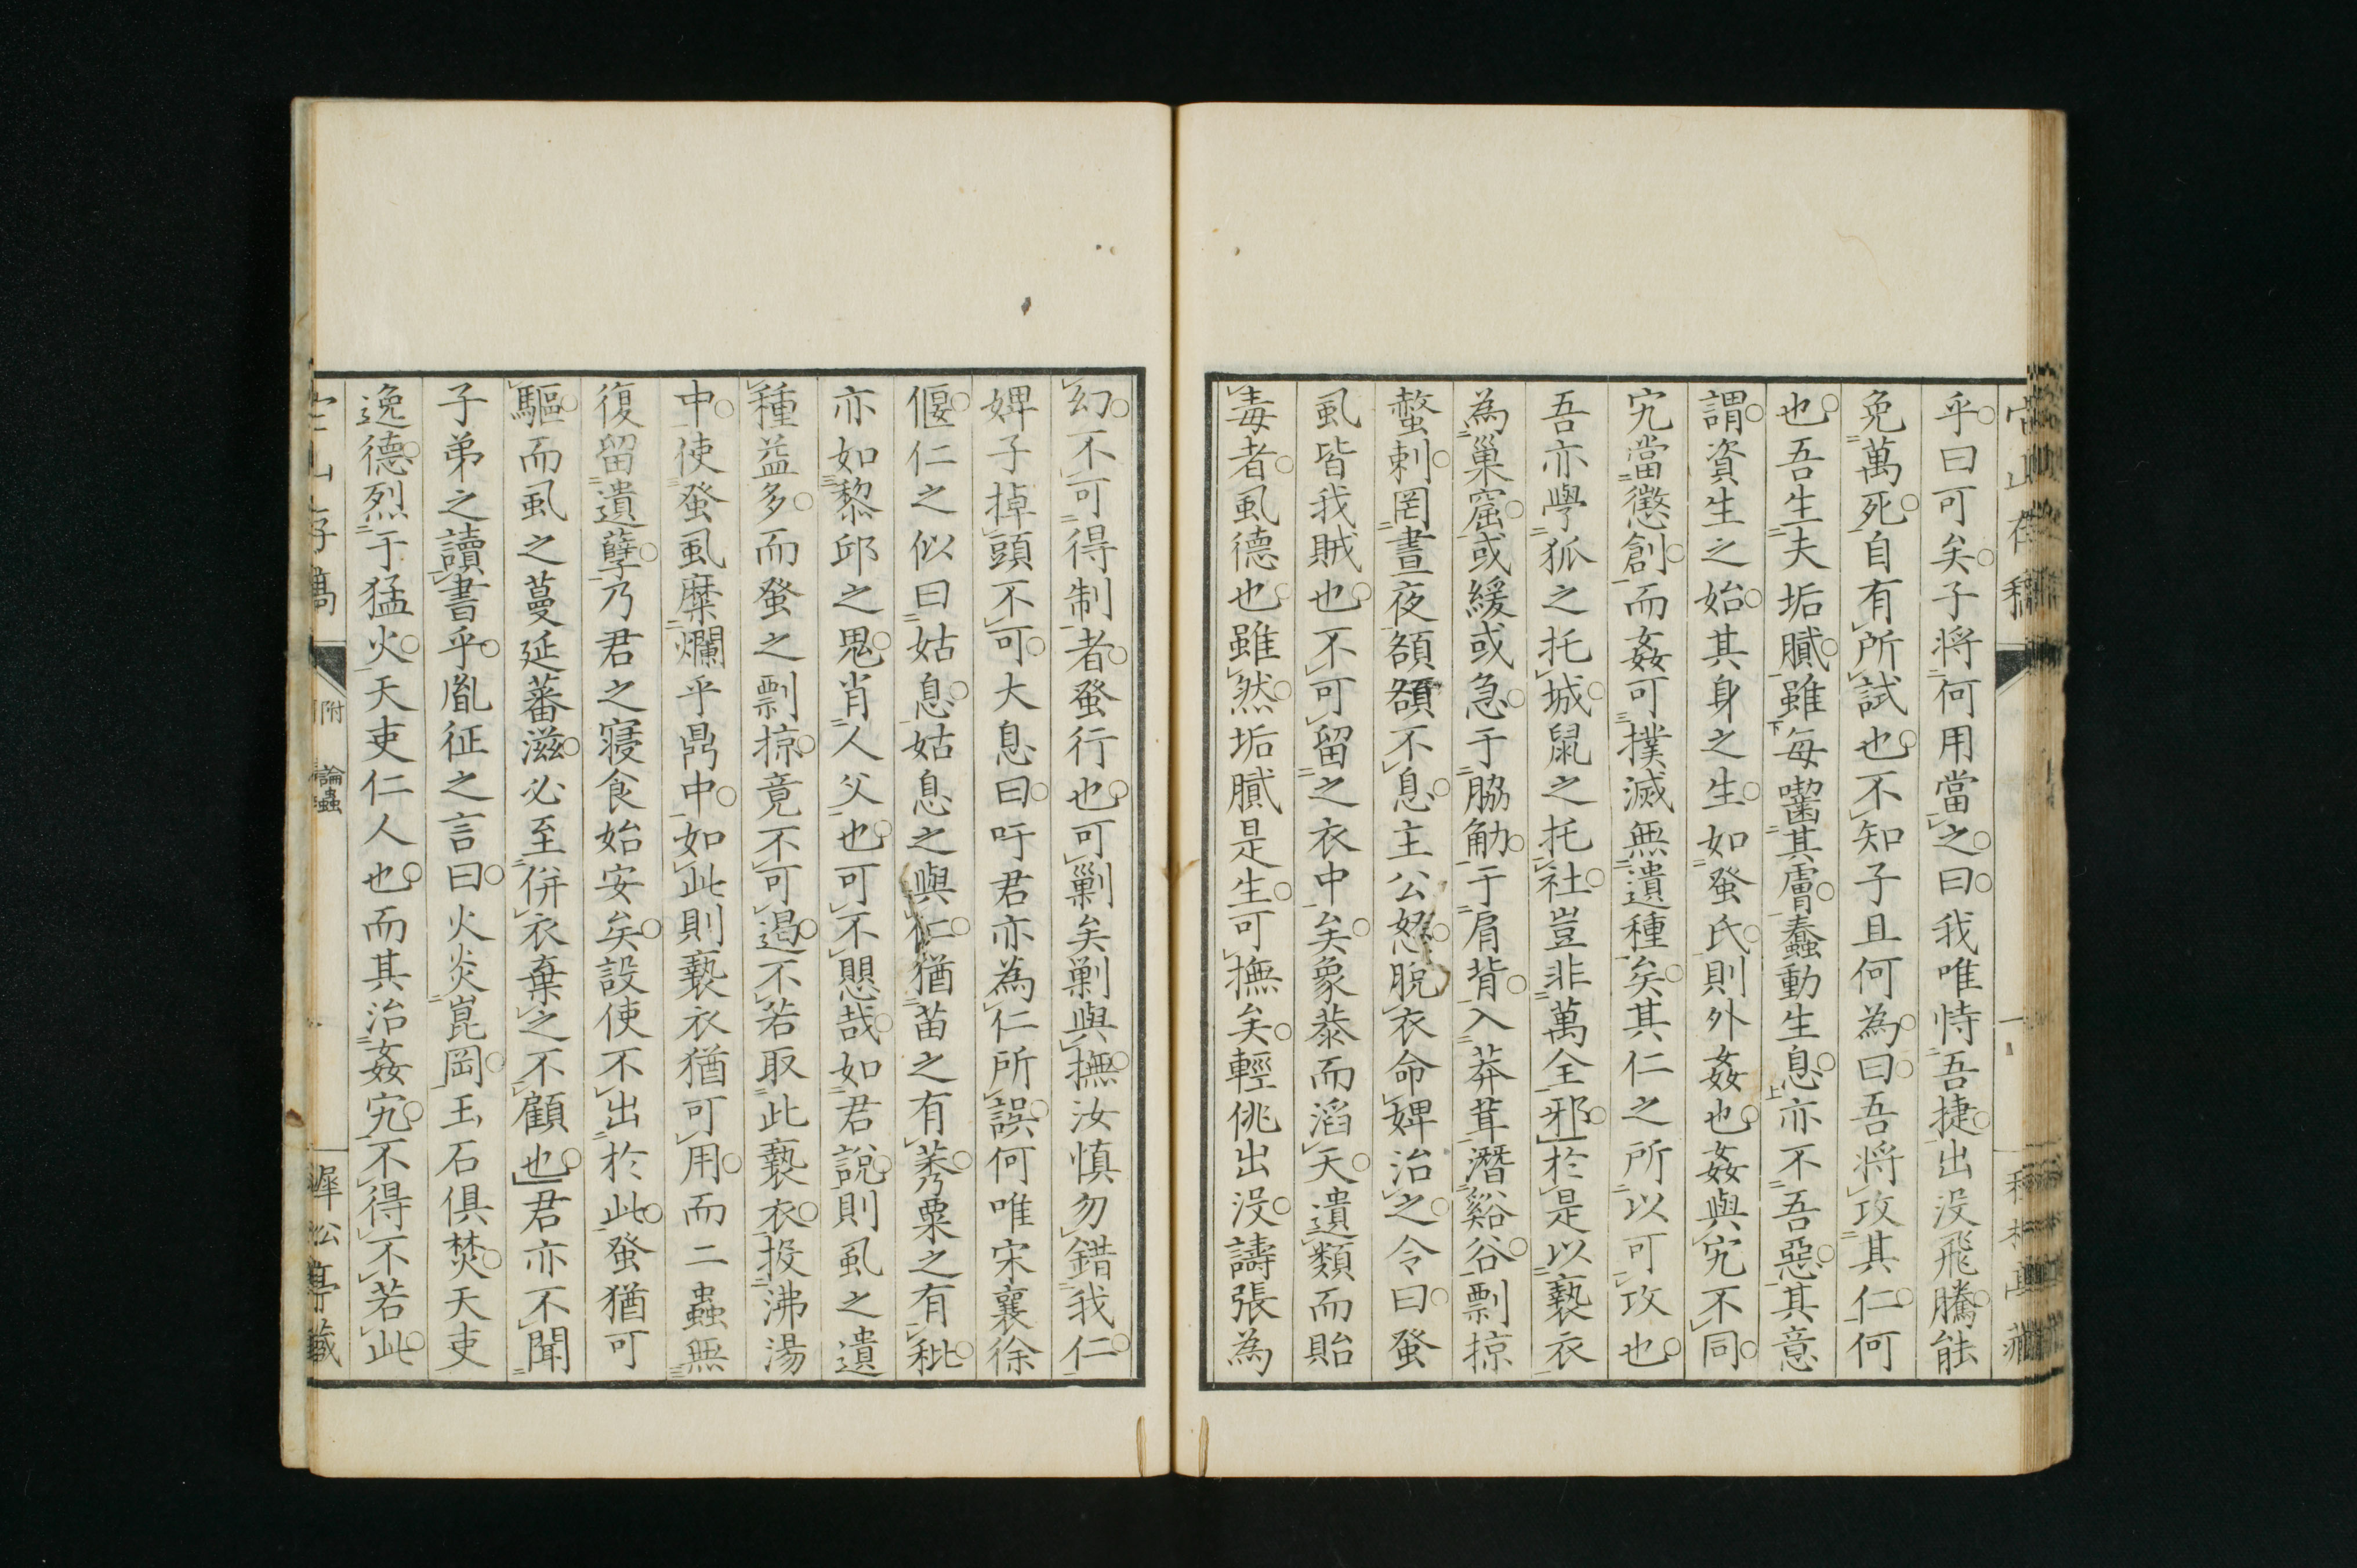 乎曰可矣子將何用當之曰我唯恃吾捷出没飛騰能
免萬死自有所試也不知子且何為曰吾将攻其仁何
也吾生夫垢膩雖每囓其膚蠢動生息亦不吾惡其意
謂資生之始其身之生如蚤氏則外姦也姦與宄不同
宄當懲創而姦可撲滅無遺種矣其仁之所以可攻也
吾亦學狐之托城鼠之托社豈非萬全邪於是以褻衣
為巢窟或緩或急于脇肋于肩背入莽茸潛谿谷剽掠
螫刺罔晝夜頟頟不息主公怒脱衣命婢治之令曰蚤
虱皆我賊也不可留之衣中矣象恭而滔天遺類而貽
毒者虱德也雖然垢膩是生可撫矣輕佻出没譸張為
幻不可得制者蚤行也可剿矣剿與撫汝慎勿錯我仁
婢子掉頭不可大息曰吁君亦為仁所誤何唯宋襄徐
偃仁之似曰姑息姑息之與仁猶苗之有莠粟之有秕
亦如黎邱之鬼肖人父也可不愳哉如君說則虱之遺
種益多而蚤之剽掠竟不可遏不若取此褻衣投沸湯
中使蚤虱糜爛乎鼎中如此則褻衣猶可用而二蟲無
復留遺孽乃君之寢食始安矣設使不出於此蚤猶可
驅而虱之蔓延蕃滋必至併衣棄之不顧也君亦不聞
子弟之讀書乎胤征之言曰火炎崑岡玉石俱焚天吏
逸德烈于猛火天吏仁人也而其治姦宄不得不若此
附 論蟲
遲松亭藏